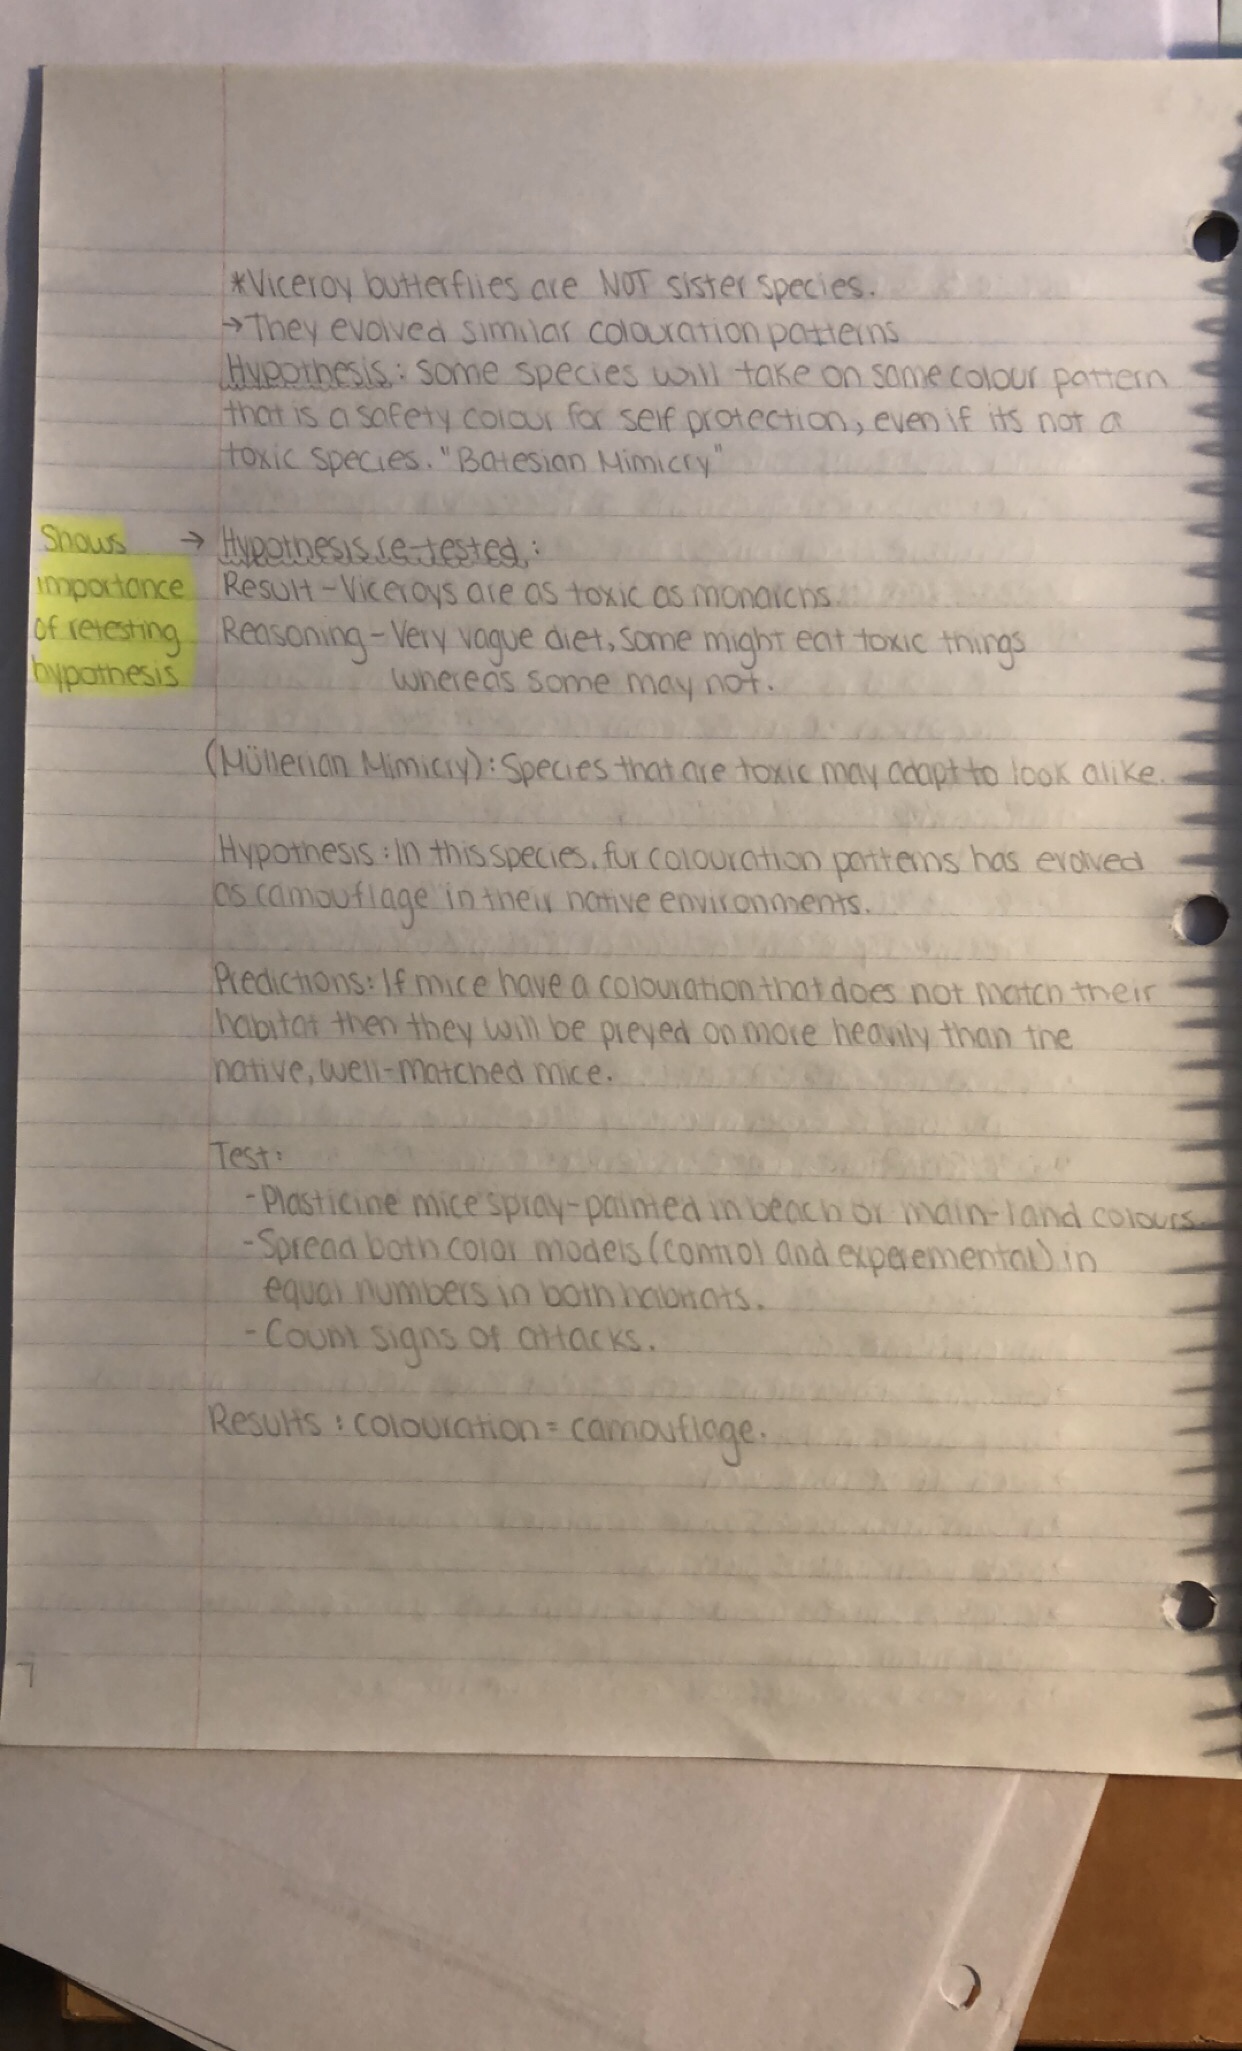 *Viceroy butterflies are NOT sister species.
→They evolved similar colouration patterns
Hypothesis: Some species will take on same colour pattern
that is a safety colour for self protection, even if its not a
toxic species. "Batesian Mimicry"
Shows → Hypothesis re-tested:
importance Result - Viceroys are as toxic as monarchs
of retesting Reasoning - Very vague diet, some might eat toxic things
hypothesis whereas some may not.
(Müllerian Mimicry): Species that are toxic may adapt to look alike.
Hypothesis: In this species, fur colouration patterns has evolved
as camouflage in their native environments.
Predictions: If mice have a colouration that does not match their
habitat then they will be preyed on more heavily than the
native, well-matched mice.
Test:
- Plasticine mice spray-painted in beach or main-land colours.
- Spread both color models (control and experemental) in
equal numbers in both habitats.
- Count signs of attacks.
Results: colouration = camouflage.
7